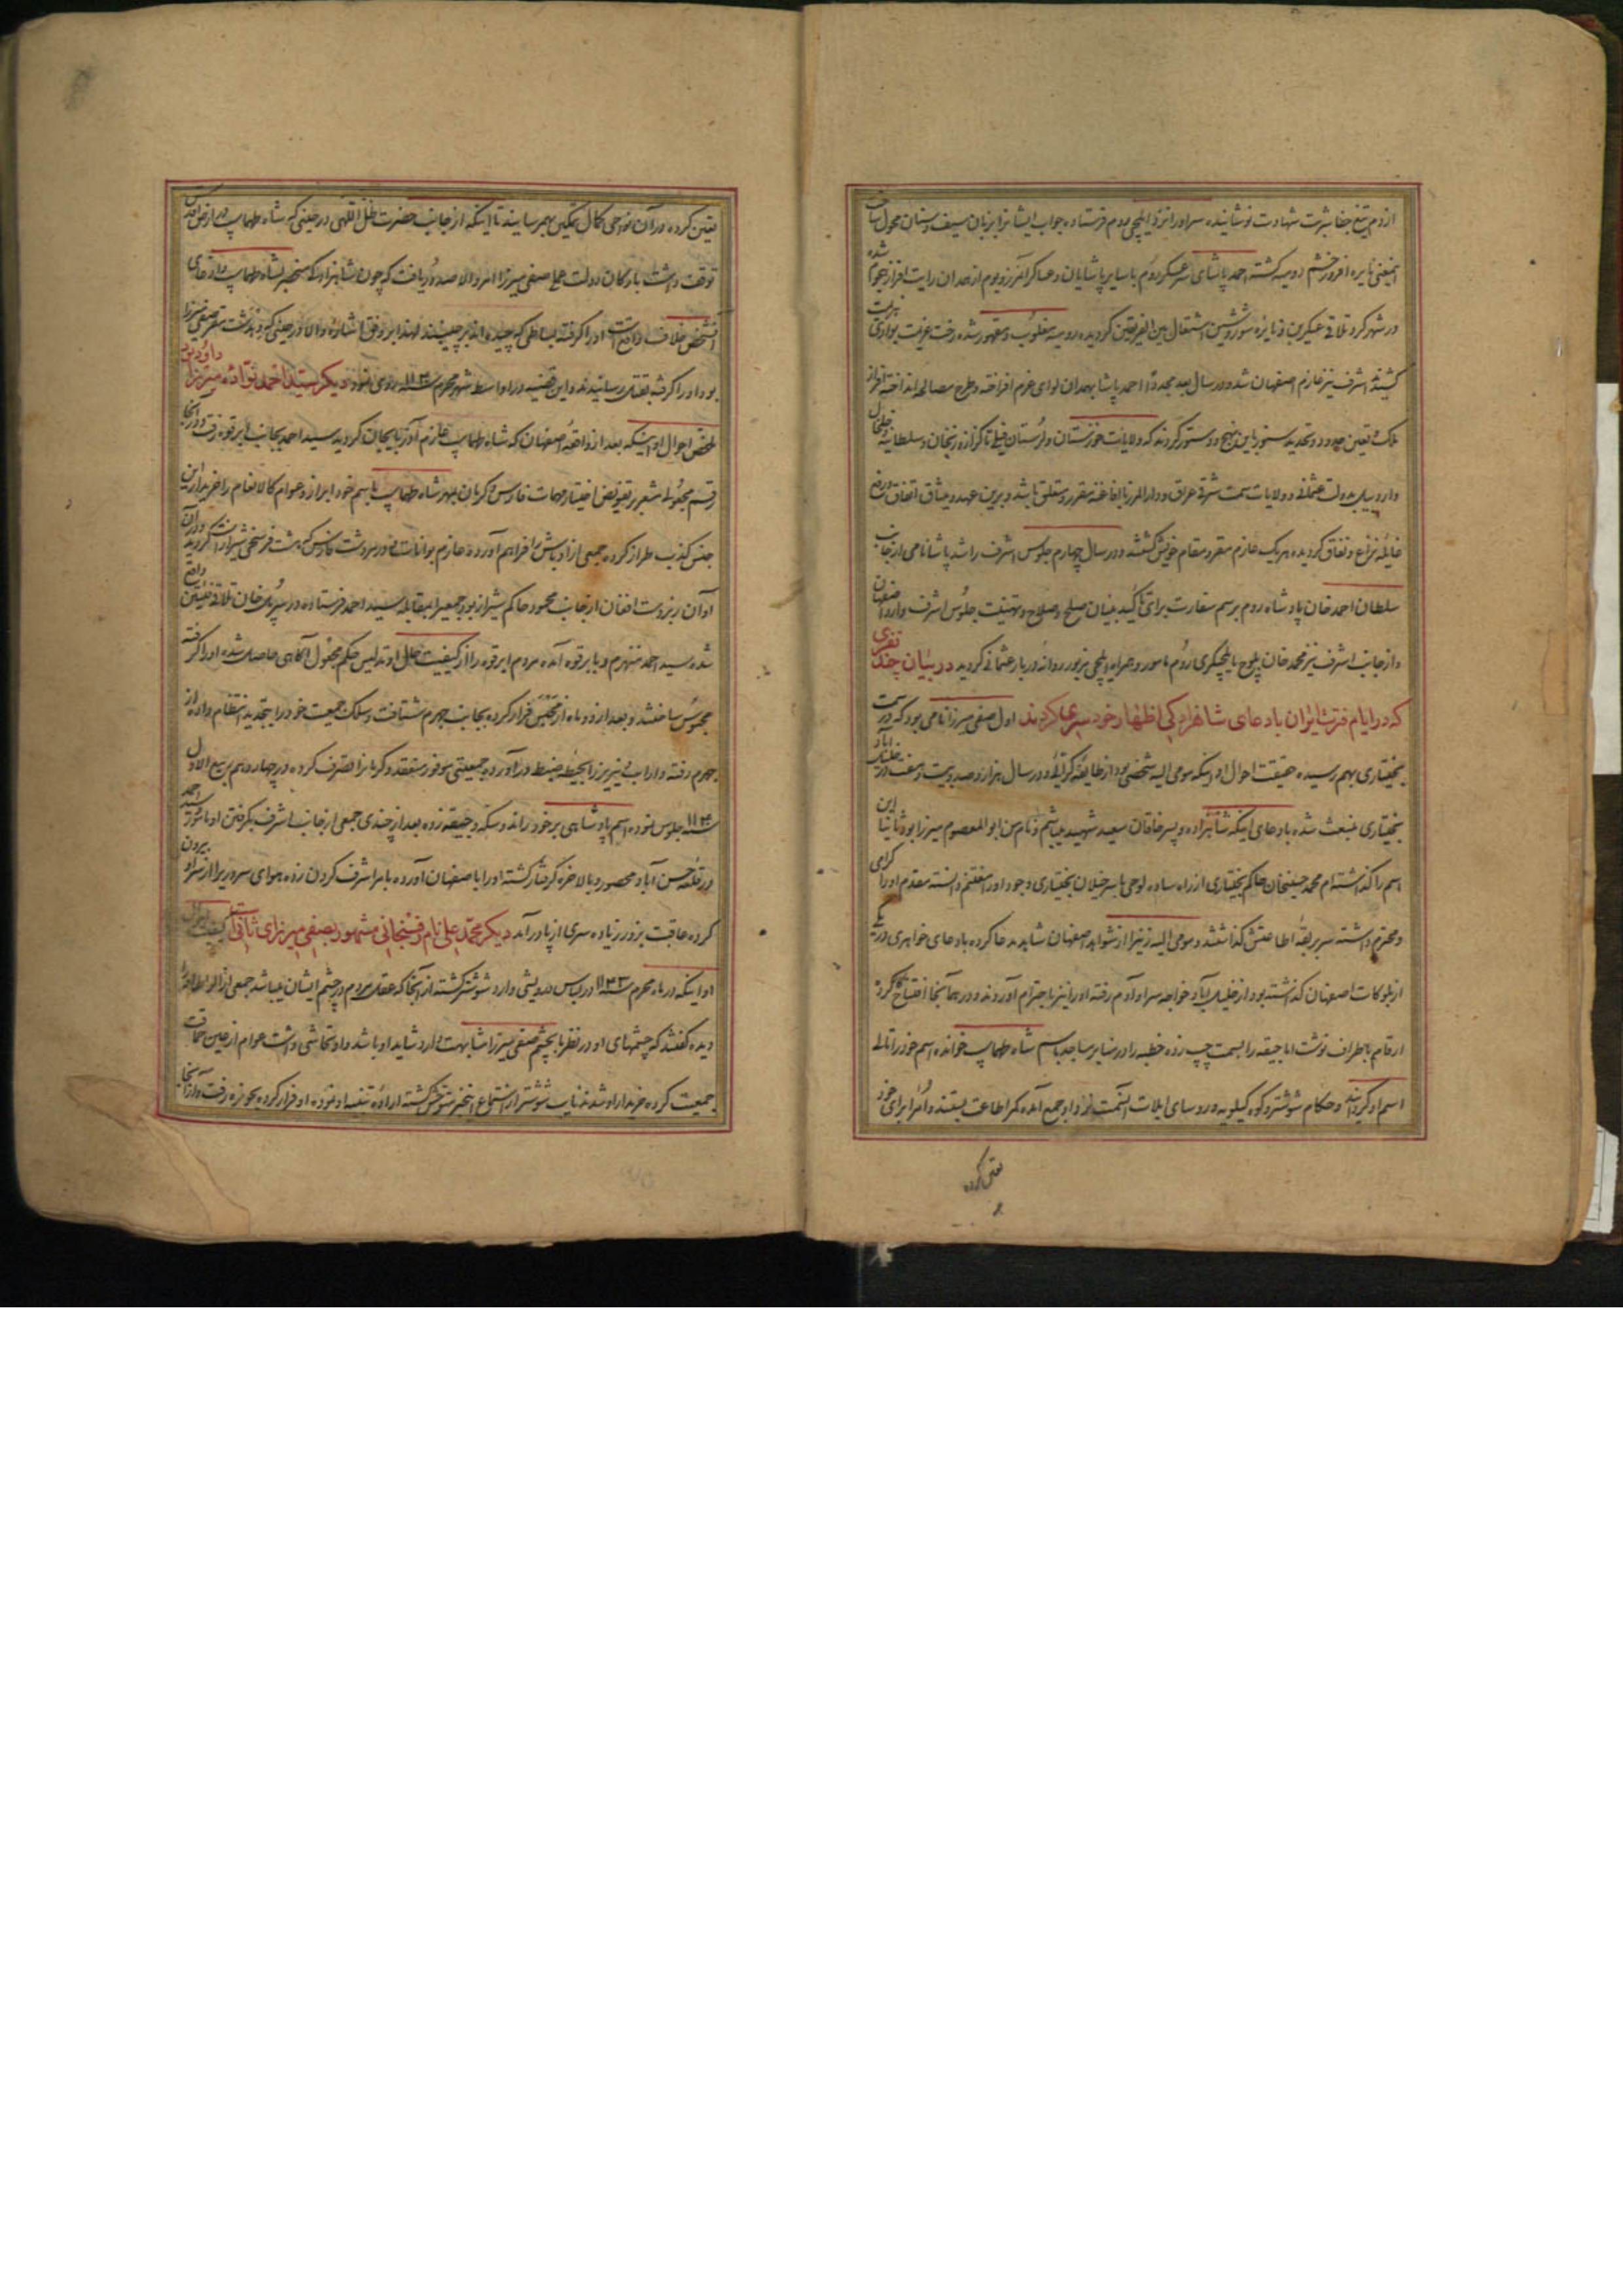 از دم تیغ جفا شربت شهادت نوشانیده سر او را نزد ایلچی روم فرستاده جواب ایشانرا بزبان سیف و سنان محول
اینمعنی نایره افروز خشم رومیه کشته احمد پاشای سرعسکر روم با سایر پاشایان و عساکر آنمرز و بوم از همدان رایت افراز هجوم شده
در شهر کرد تلاقی عسکرین و نایره شور و شین اشتعال بین الفریقین کردیده رومیه مغلوب و مقهور شده رخت عزیمت بوادی هزیمت
کشیدند اشرف نیز عازم اصفهان شد و در سال بعد مجددا احمد پاشا بهمدان لوای عزم افراخته و طرح مصالحه انداخته
ملک و تعیین حدود و تجدید سنور باین نهج دستور کردند که ولایات خوزستان و لرستان فیلی تا کزاز و زنجان و سلطانیه و خلخال
و اردبیل بدولت عثمانی و ولایات سمت شرقی عراق و دار المرز بافاغنه مقرر و متعلق باشد و برین عهد و میثاق اتفاق ورزیده
غایله نزاع و نفاق کردیده هر یک عازم مقر و مقام خویش کشتند و در سال چهارم جلوس اشرف راشد پاشا نامی از جانب
سلطان احمد خان پادشاه روم برسم سفارت برای تاکید بنیان صلح و صلاح و تهنیت جلوس اشرف وارد اصفهان
و از جانب اشرف نیز محمد خان بلوچ بایلچیکری روم مامور و همراه ایلچی مزبور روانه دربار عثمانی کردید در بیان چند نفری
که در ایام فترت ایران بادعای شاهزادکی اظهار خودسری کردند اول صفی میرزا نامی بود که در سمت
بختیاری بهم رسیده حقیقت احوال او اینکه مومی الیه شخصی بود از طایفه کرائی و در سال هزار و صد و بیست و هفت در خلیل آباد
بختیاری منبعث شده بادعای اینکه شاهزاده و پسر خاقان سعید شهید میباشم و نام من ابو المعصوم میرزا بود ثانیا این
اسم را کذاشته ام محمد حسینخان حاکم بختیاری از راه ساده لوحی با سرخیلان بختیاری وجود او را مغتنم دانسته مقدم او را کرامی
و محترم داشته سر بربقه اطاعتش کذاشتند و مومی الیه زنیرا از شواهد اصفهان شاهد مدعا کرده بادعای خواهری در یکی
از بلوکات اصفهان کذاشته بود از خلیل آباد خواجه سرا و آدم رفته او را نیز باحترام آوردند و در همانجا افتتاح کار کرده
ارقام باطراف نوشت اما جیقه را بسمت چپ زده خطبه را در منابر مساجد باسم شاه طهماسب خوانده اسم خود را تالی
اسم او کردانید و حکام شوشتر و کوه کیلویه و روسای ایلات آنسمت نزد او جمع آمده کمر اطاعت بستند و امرا برای خود
تعیین کرده
تعیین کرده در آن نواحی کمال تمکین بهم رسانید تا اینکه از جانب حضرت ظل اللهی در حینی که شاه طهماسب در ارض اقدس
توقف داشت بارکان دولت علی صفی میرزا امر والا صدور یافت که چون شاهزادکی منحصر بشاه طهماسب و ادعای
آنشخص خلاف واقع است او را کرفته بساطی که چیده اند برچینند لهذا بر وفق اشاره والا در حینی که وارد دشت صفی میرزا
بود او را کرفته بقتل رسانیدند و این قضیه در اواسط شهر محرم سنه ۱۱۴۰ روی نمود دیکر سید احمد نواده میرزا داود بود
ملخص احوال او اینکه بعد از واقعه اصفهان که شاه طهماسب عازم آذربایجان کردید سید احمد بجانب ابرقوه رفت و در آنجا
رقم مجعولی مشعر بر تفویض اختیار مهمات فارس و کرمان بمهر شاه طهماسب باسم خود ابراز و عوام کالانعام را خریدار این
جنس کذب طراز کرده جمعی از اوباش را فراهم آورده عازم بوانات و مرودشت فارس که هشت فرسخی شیراز است کردید و در آن
اوان زبردست افغان از جانب محمود حاکم شیراز بود جمعیرا بمقابله سید احمد فرستاده در سر پل خان تلاقی فئتین واقع
شده سید احمد منهزم و بابرقوه آمده مردم ابرقوه را از کیفیت حال او و تدلیس حکم مجعول آکاهی حاصل شده او را کرفته
محبوس ساختند و بعد از دو ماه از محبس فرار کرده بجانب جهرم شتافت و سلک جمعیت خود را بتجدید انتظام داده از
جهرم رفته داراب و نیریز را بحیطه ضبط درآورده جمعیتی موفور منعقد و کرمانرا تصرف کرده در چهاردهم ربیع الاول
سنه ۱۱۳۹ جلوس نموده اسم پادشاهی بر خود رانده و سکه و جیقه زده بعد از چندی جمعی از جانب اشرف بکرفتن او مامور سید احمد
در قلعه حسن آباد محصور و بالاخره کرفتار کشته او را باصفهان آورده بامر اشرف کردن زده هوای سروریرا از سر او بیرون
کرده عاقبت بزور زیاده سری از پا درآمد دیکر محمد علی نام رفسنجانی مشهور بصفی میرزای ثانی است کیفیت احوال
او اینکه در ماه محرم سنه ۱۱۴۲ در لباس درویشی وارد شوشتر کشته از آنجا که عقل مردم در چشم ایشان میباشد جمعی از الواط او را
دیده کفتند که چشمهای او در نظر ما بچشم صفی میرزا مشابهت دارد شاید او باشد و او تحاشی داشت عوام از عین حماقت
جمعیت کرده خریدار او شدند نایب شوشتر از استماع اینخبر متوحش کشته اراده تنبیه او نموده او فرار کرده بحویزه رفت و از آنجا